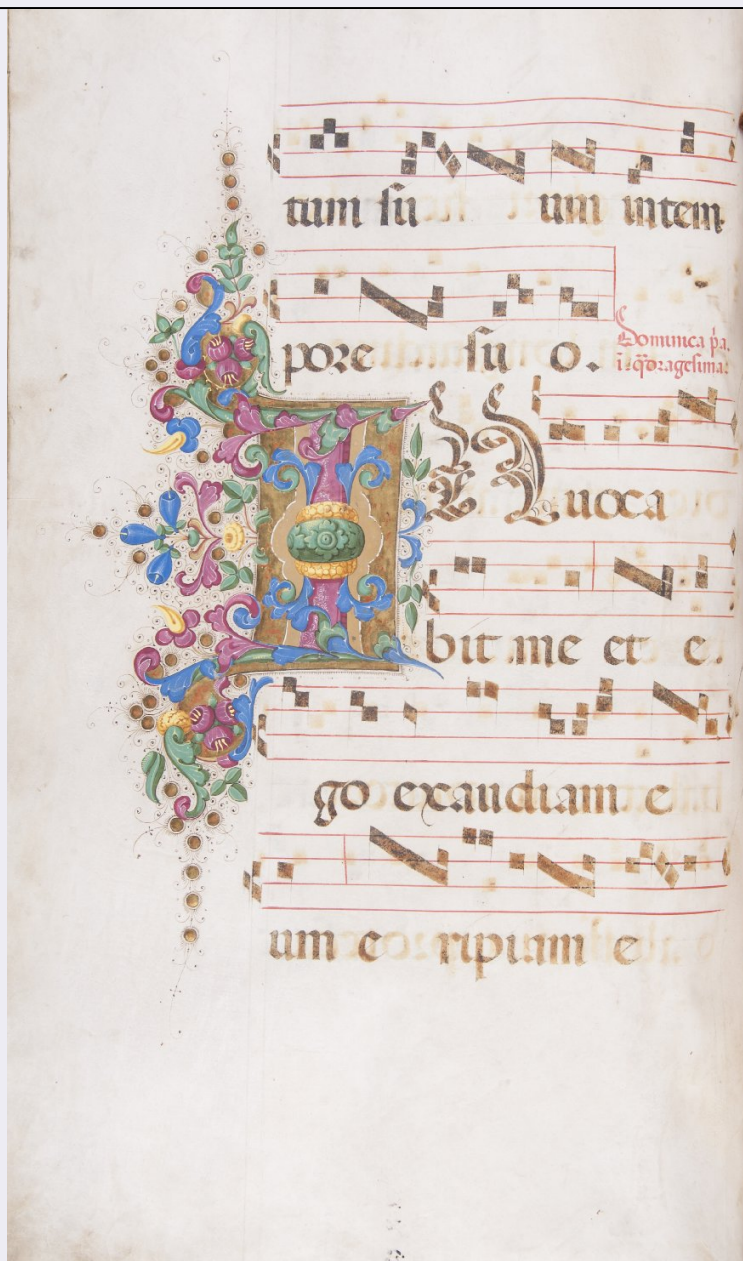 tum su um intem
pore su o.
Dominica p̓a.
i q̄dragesima:
INuoca
bit me et e.
go exaudiam e
um e ripiam e